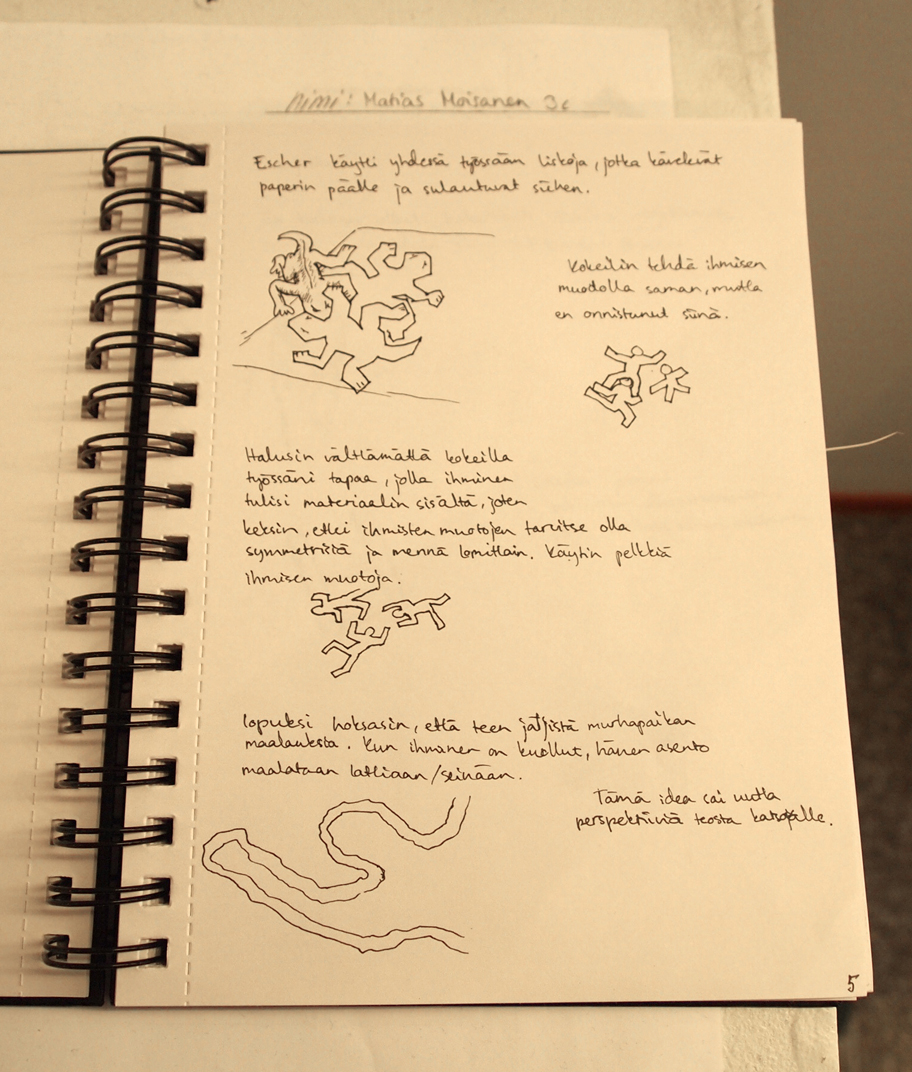 Nimi: Matias Moisanen 3c
Escher käytti yhdessä työssään liskoja, jotka kävelivät
paperin päälle ja sulautuvat siihen.
Kokeilin tehdä ihmisen
muodolla saman, mutta
en onnistunut siinä.
Halusin välttämättä kokeilla
työssäni tapaa, jolla ihminen
tulisi materiaalin sisältä, joten
keksin, ettei ihmisten muotojen tarvitse olla
symmetrisiä ja mennä lomittain. Käytin pelkkiä
ihmisen muotoja.
lopuksi hoksasin, että teen murhapaikan
maalauksia. Kun ihminen on kuollut, hänen asento
maalataan lattiaan/seinään.
Tämä idea toi uutta
perspektiiviä teosta katsojalle.
5